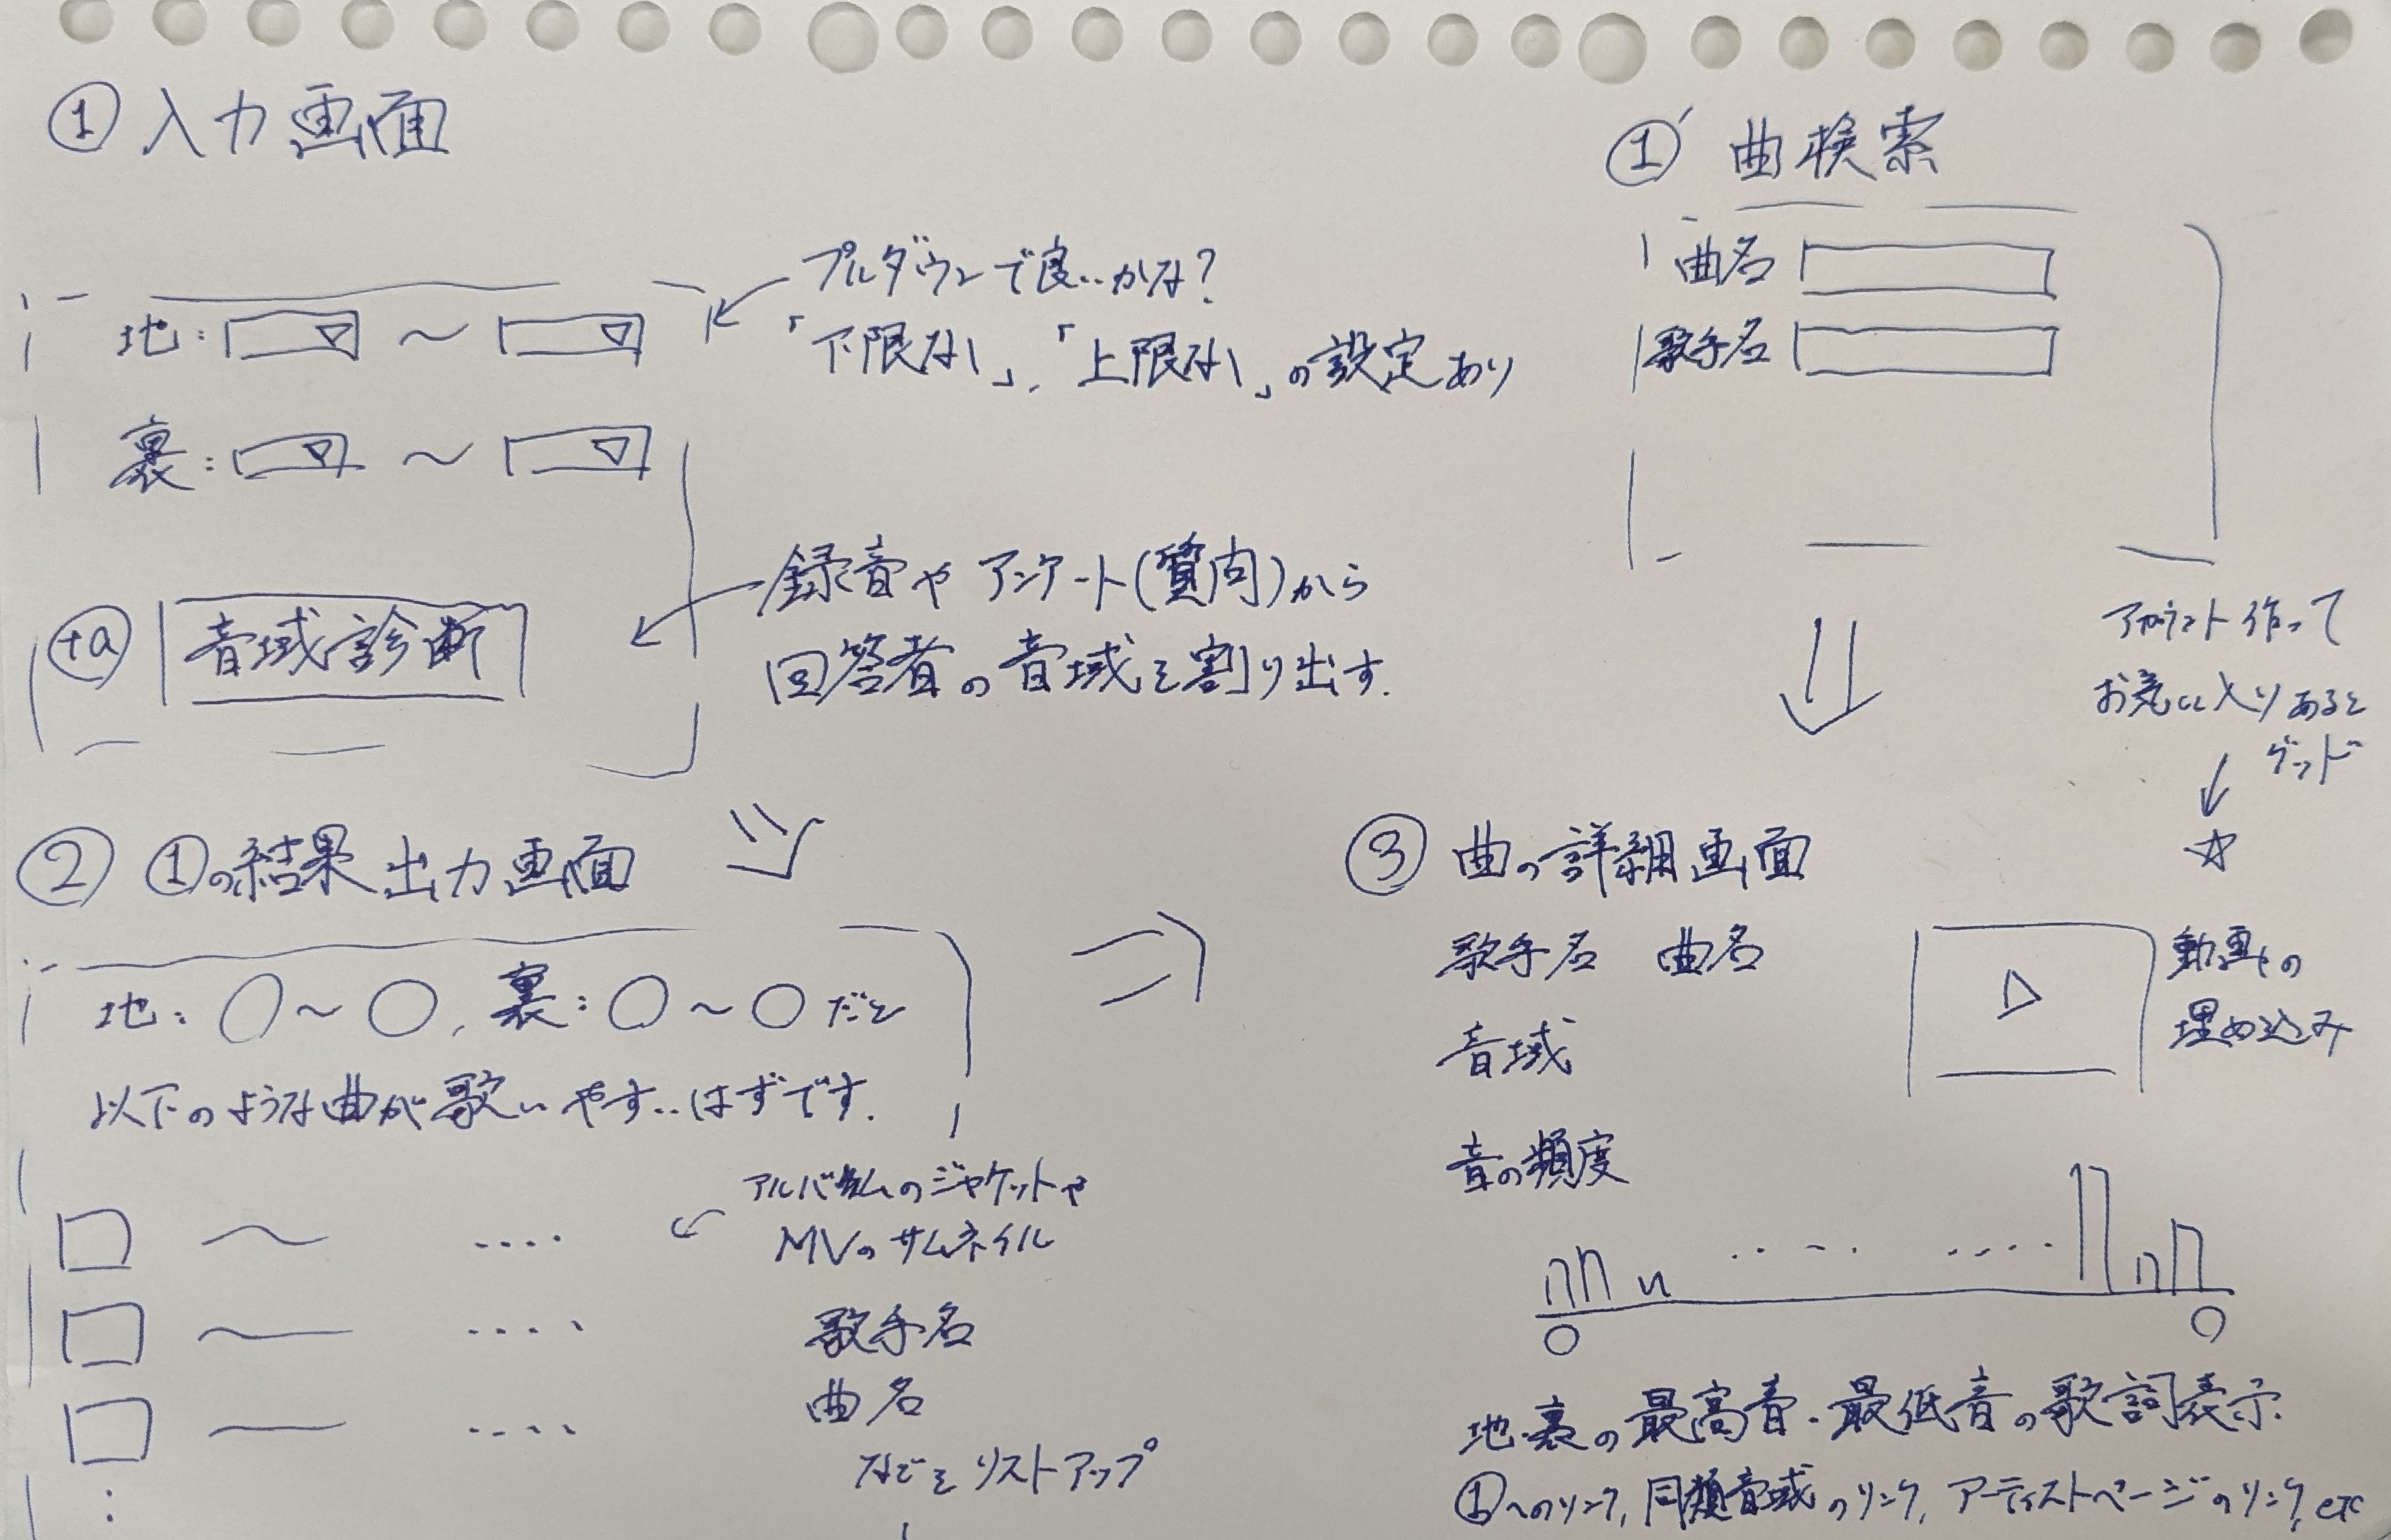 ① 入力画面
地: ～
プルダウンで良いかな?
「下限なし」、「上限なし」の設定あり
裏: ～
+α 音域診断
録音やアンケート(質問)から
回答者の音域を割り出す.
② ①の結果出力画面
地: ○～○, 裏: ○～○だと
以下のような曲が歌いやすいはずです.
アルバムのジャケットや
MVのサムネイル
歌手名
曲名
などをリストアップ
①' 曲検索
曲名
歌手名
アカウント作って
お気に入りあると
グッド
☆
③ 曲の詳細画面
歌手名 曲名
動画の
埋め込み
音域
音の頻度
地・裏の最高音・最低音の歌詞表示.
①へのリンク, 同類音域のリンク, アーティストページのリンク, etc